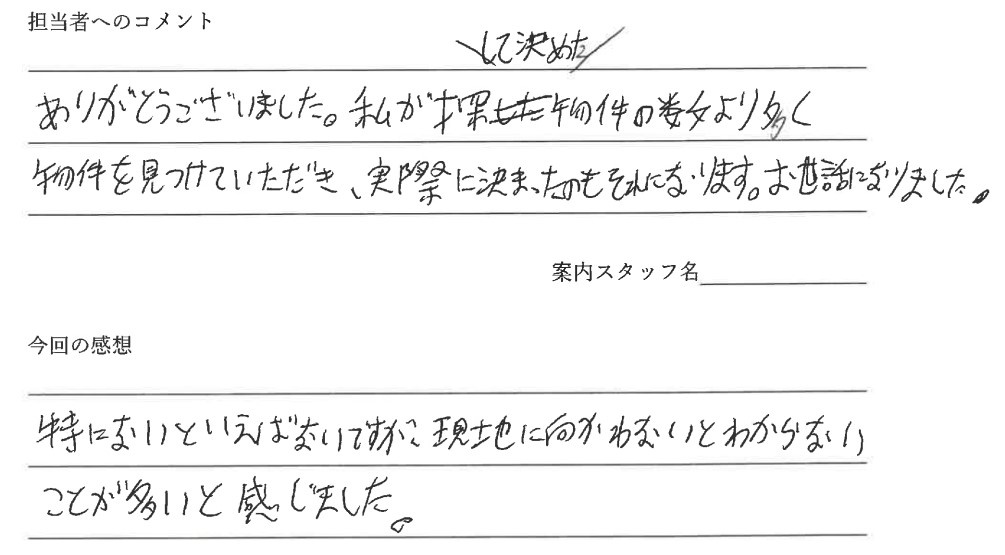 担当者へのコメント
して決めた
ありがとうございました。私が探した物件の数々より多く
物件を見つけていただき、実際に決まったのもそれになります。お世話になりました。
案内スタッフ名
今回の感想
特にないといえばないですが、現地に向かわないとわからない
ことが多いと感じました。